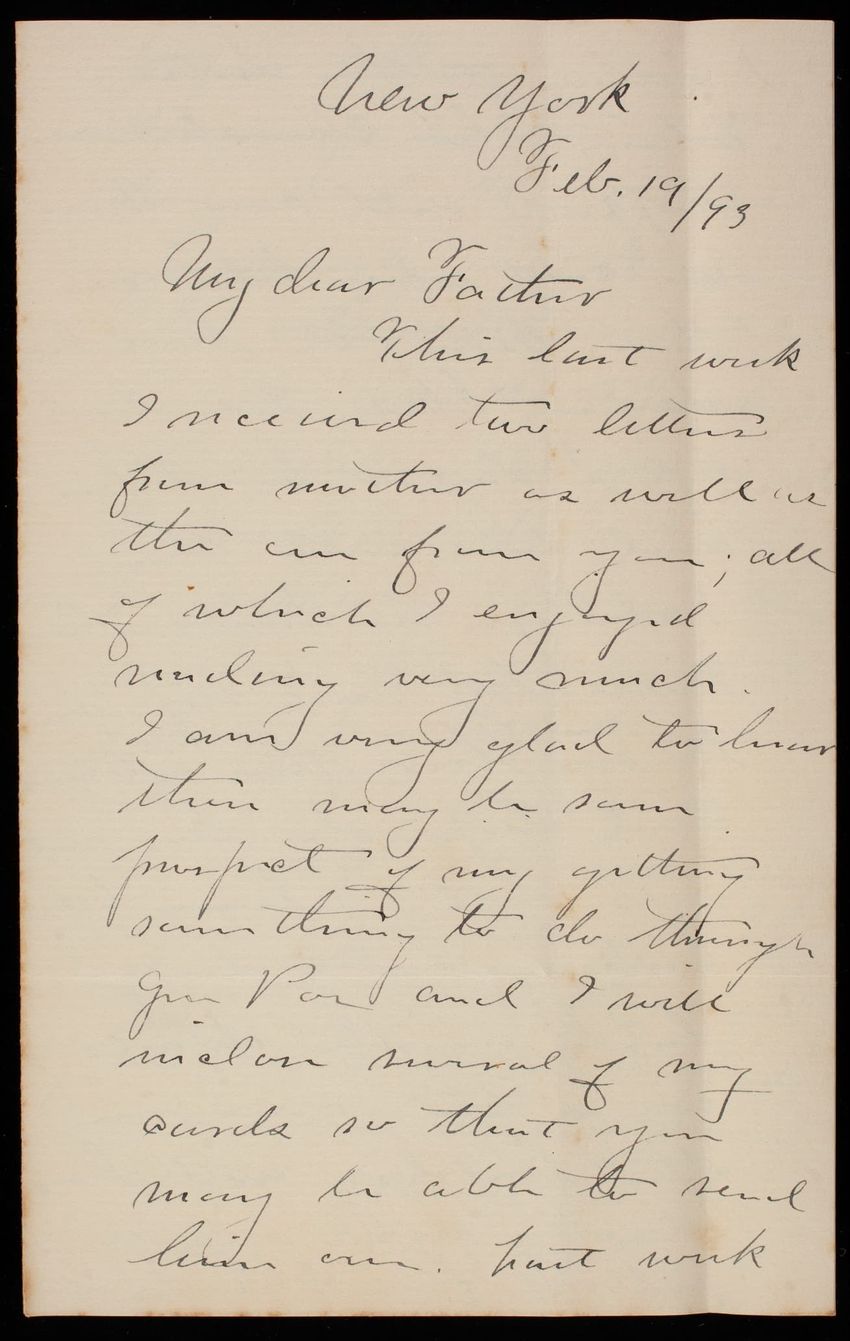 New York
Feb. 19/93
My dear Father
This last week
I received two letters
from mother as well as
the one from you; all
of which I enjoyed
reading very much.
I am very glad to hear
there may be some
prospect of my getting
something to do through
Gen Poe and I will
inclose several of my
cards so that you
may be able to send
him one. Last week